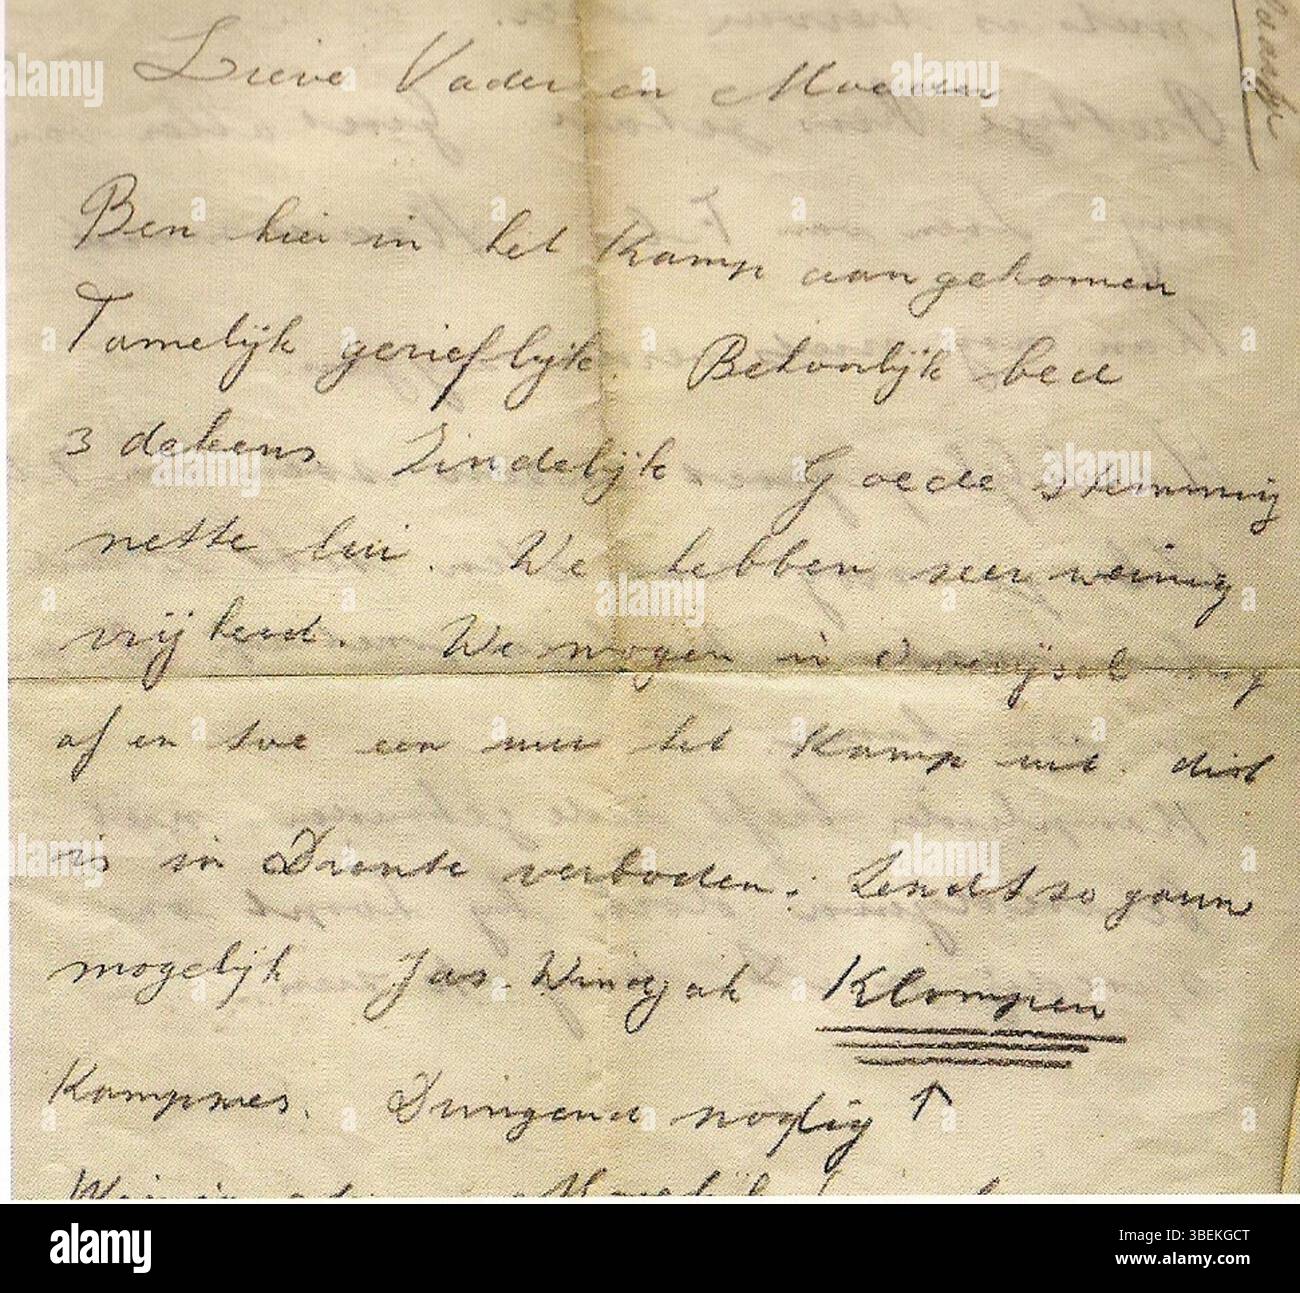 Lieve Vader en Moeder
Ben hier in het Kamp aangekomen
Tamelijk gerieflijk. Behoorlijk bed
3 dekens Zindelijk Goede stemming
nette lui. We hebben zeer weinig
vrijheid. We mogen in Overijsel nog
af en toe een uur het Kamp uit. dit
is in Drente verboden. Zendt zo gauw
mogelijk Jas. Windjak Klompen
Kampmes. Dringend nodig ↑
alamy
Image ID: 3BEKGCT
www.alamy.com